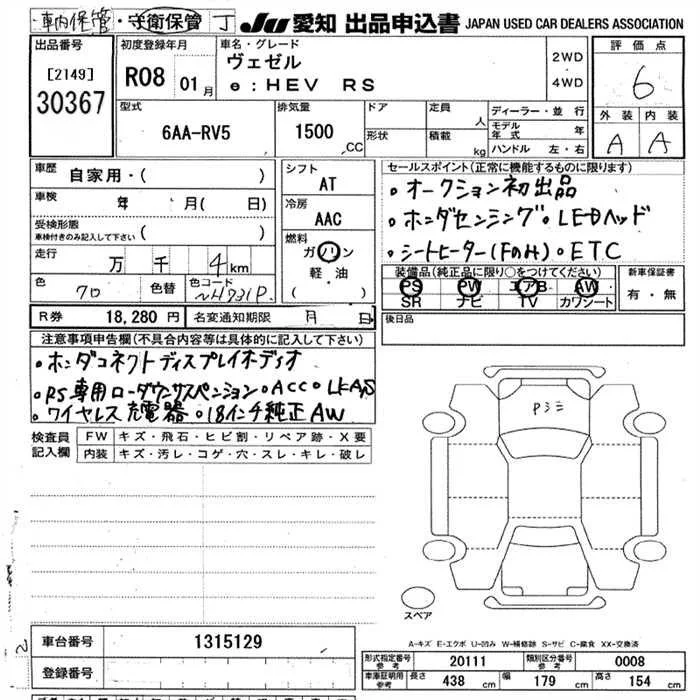 車輌保管・守衛保管 丁 JU 愛知 出品申込書 JAPAN USED CAR DEALERS ASSOCIATION
出品番号
[2149]
30367
初度登録年月
R08 01月
車名・グレード
ヴェゼル
e:HEV RS
2WD
・
4WD
評価点
6
外装 内装
A A
型式
6AA-RV5
排気量
1500 CC
ドア
形状
定員 人
積載 kg
ディーラー・並行
モデル年式 年
ハンドル 左・右
車歴 自家用・( )
車検 年 月( 日)
受検形態
車検付きのみ記入して下さい ( )
走行 万 千 4km
色 クロ 色替 色コード NH731P
シフト
AT
冷房
AAC
燃料
ガソリン
軽・油
( )
セールスポイント(正常に機能するものに限ります)
・オークション初出品
・ホンダセンシング・LEDヘッド
・シートヒーター(Fのみ)・ETC
装備品(純正品に限り○をつけてください)
PS PW エアB AW
SR ナビ TV カワシート
新車保証書
有・無
R券 18,280円 名変通知期限 月 日
後日品
注意事項申告欄(不具合内容等は具体的に記入して下さい)
・ホンダコネクトディスプレイオーディオ
・RS専用ローダウンサスペンション・ACC・LKAS
・ワイヤレス充電器・18インチ純正AW
検査員記入欄
FW キズ・飛石・ヒビ割・リペア跡・X要
内装 キズ・汚レ・コゲ・穴・スレ・キレ・破レ
スペア
A-キズ E-エクボ U-凹み W-補修跡 S-サビ C-腐食 XX-交換済
車台番号 1315129
登録番号
形式指定番号参考 20111 類別区分番号参考 0008
車庫証明用参考 長さ 438 cm 幅 179 cm 高さ 154 cm